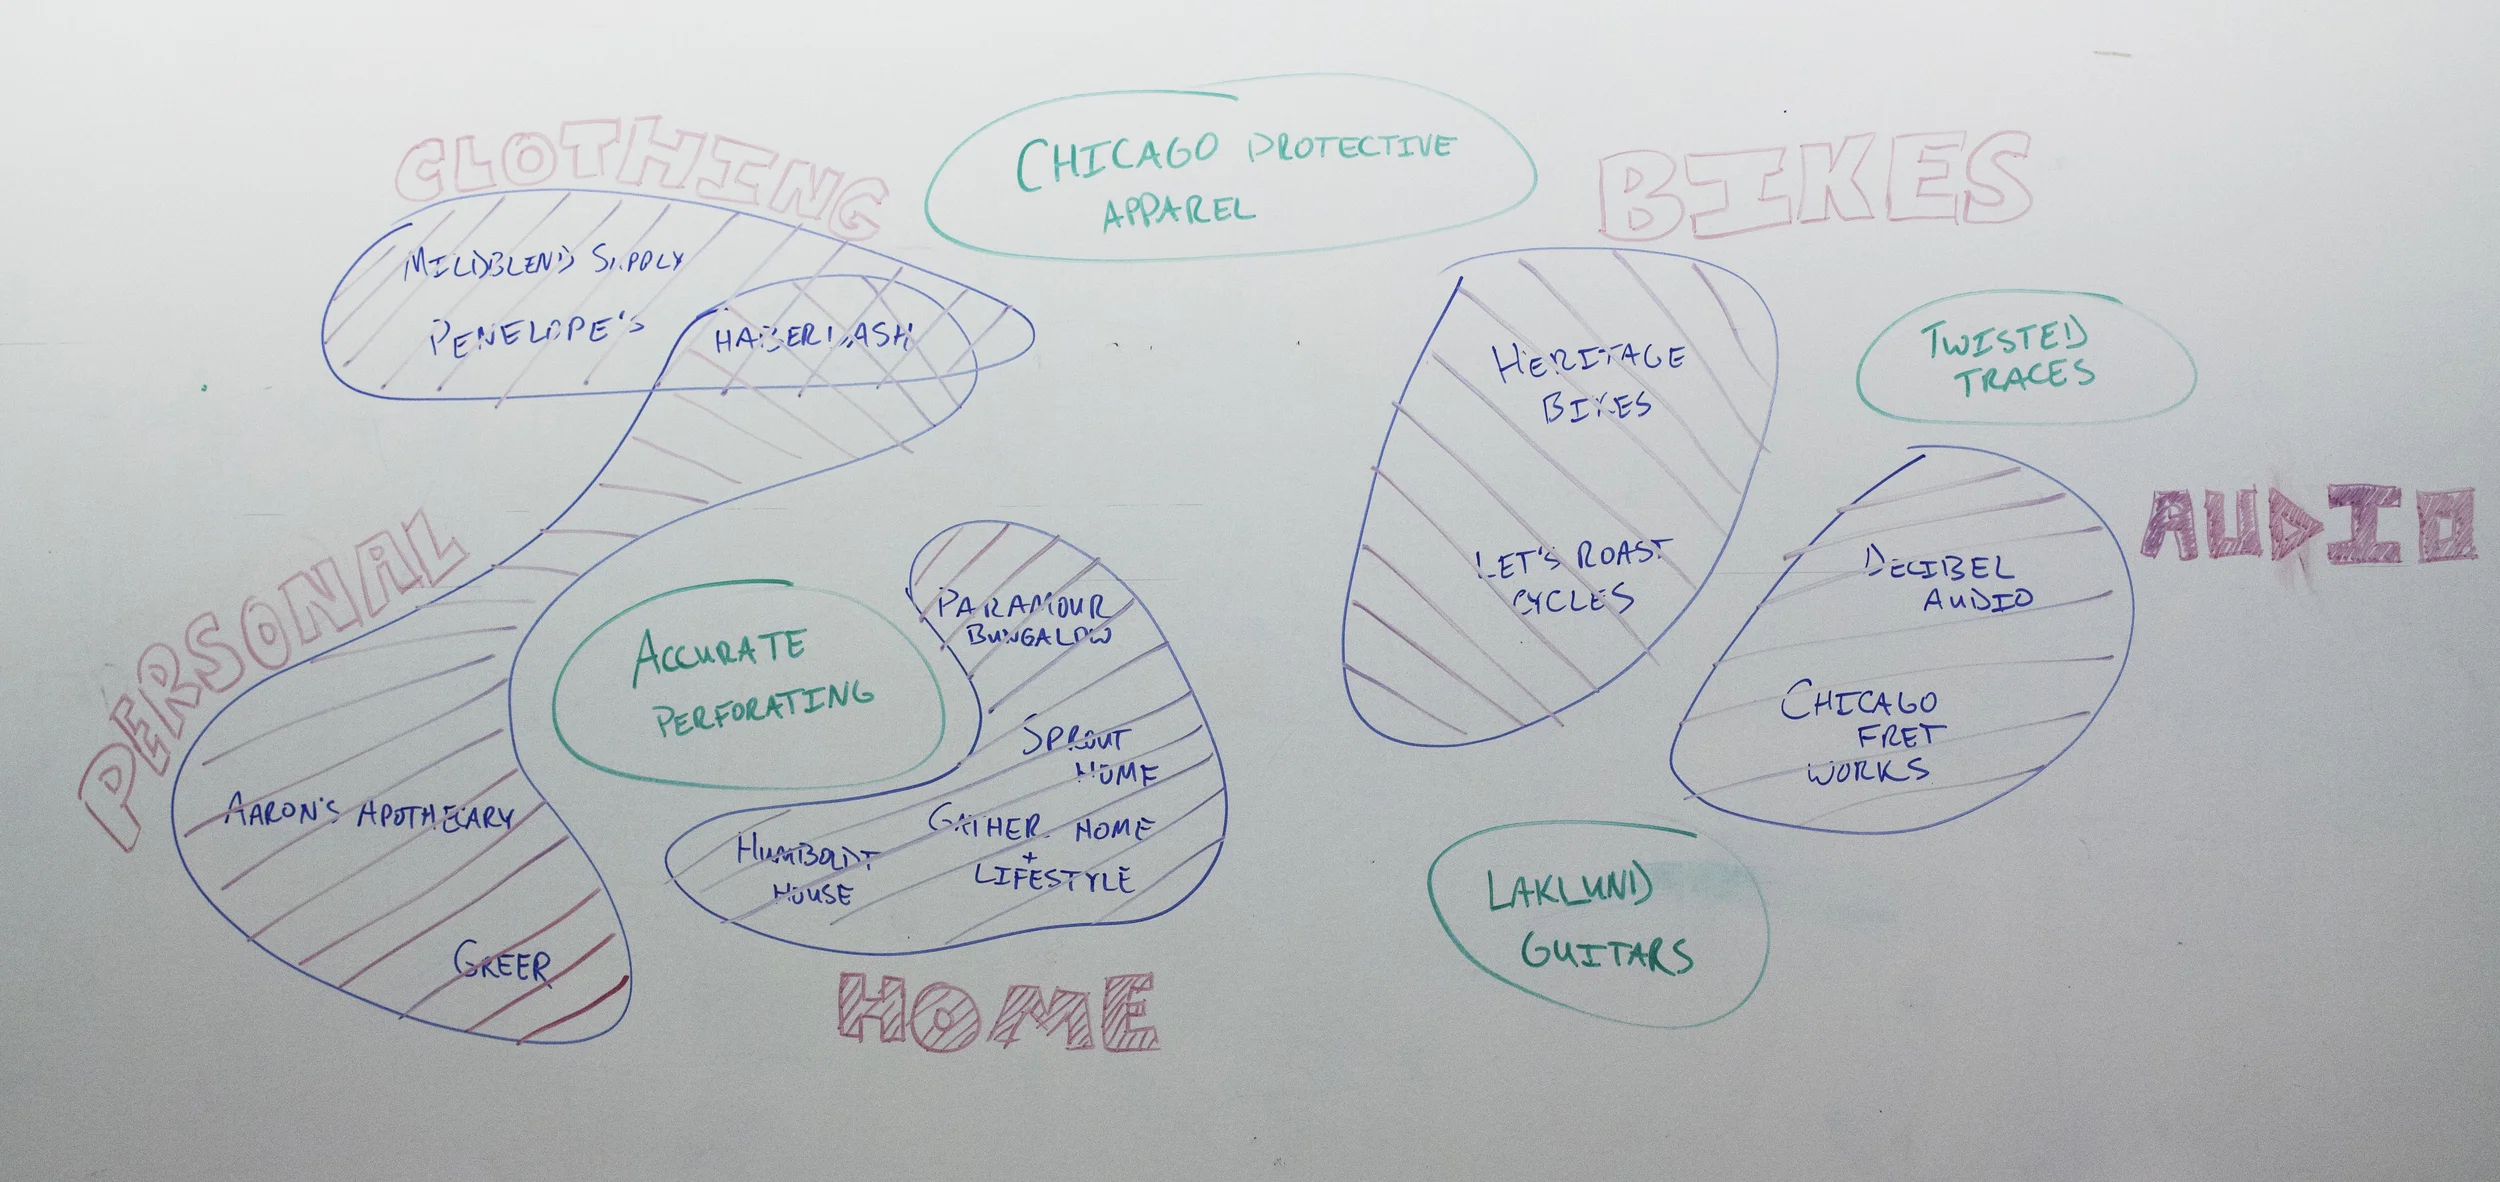 CLOTHING
CHICAGO PROTECTIVE
APPAREL
BIKES
MILDBLEND SUPPLY
PENELOPE'S
HABERDASH
HERITAGE
BIKES
LET'S ROAST
CYCLES
TWISTED
TRACES
AUDIO
DECIBEL
AUDIO
CHICAGO
FRET
WORKS
PERSONAL
AARON'S APOTHECARY
GREER
ACCURATE
PERFORATING
PARAMOUR
BUNGALOW
SPROUT
HOME
GATHER HOME
+
LIFESTYLE
HUMBOLDT
HOUSE
HOME
LAKLUND
GUITARS